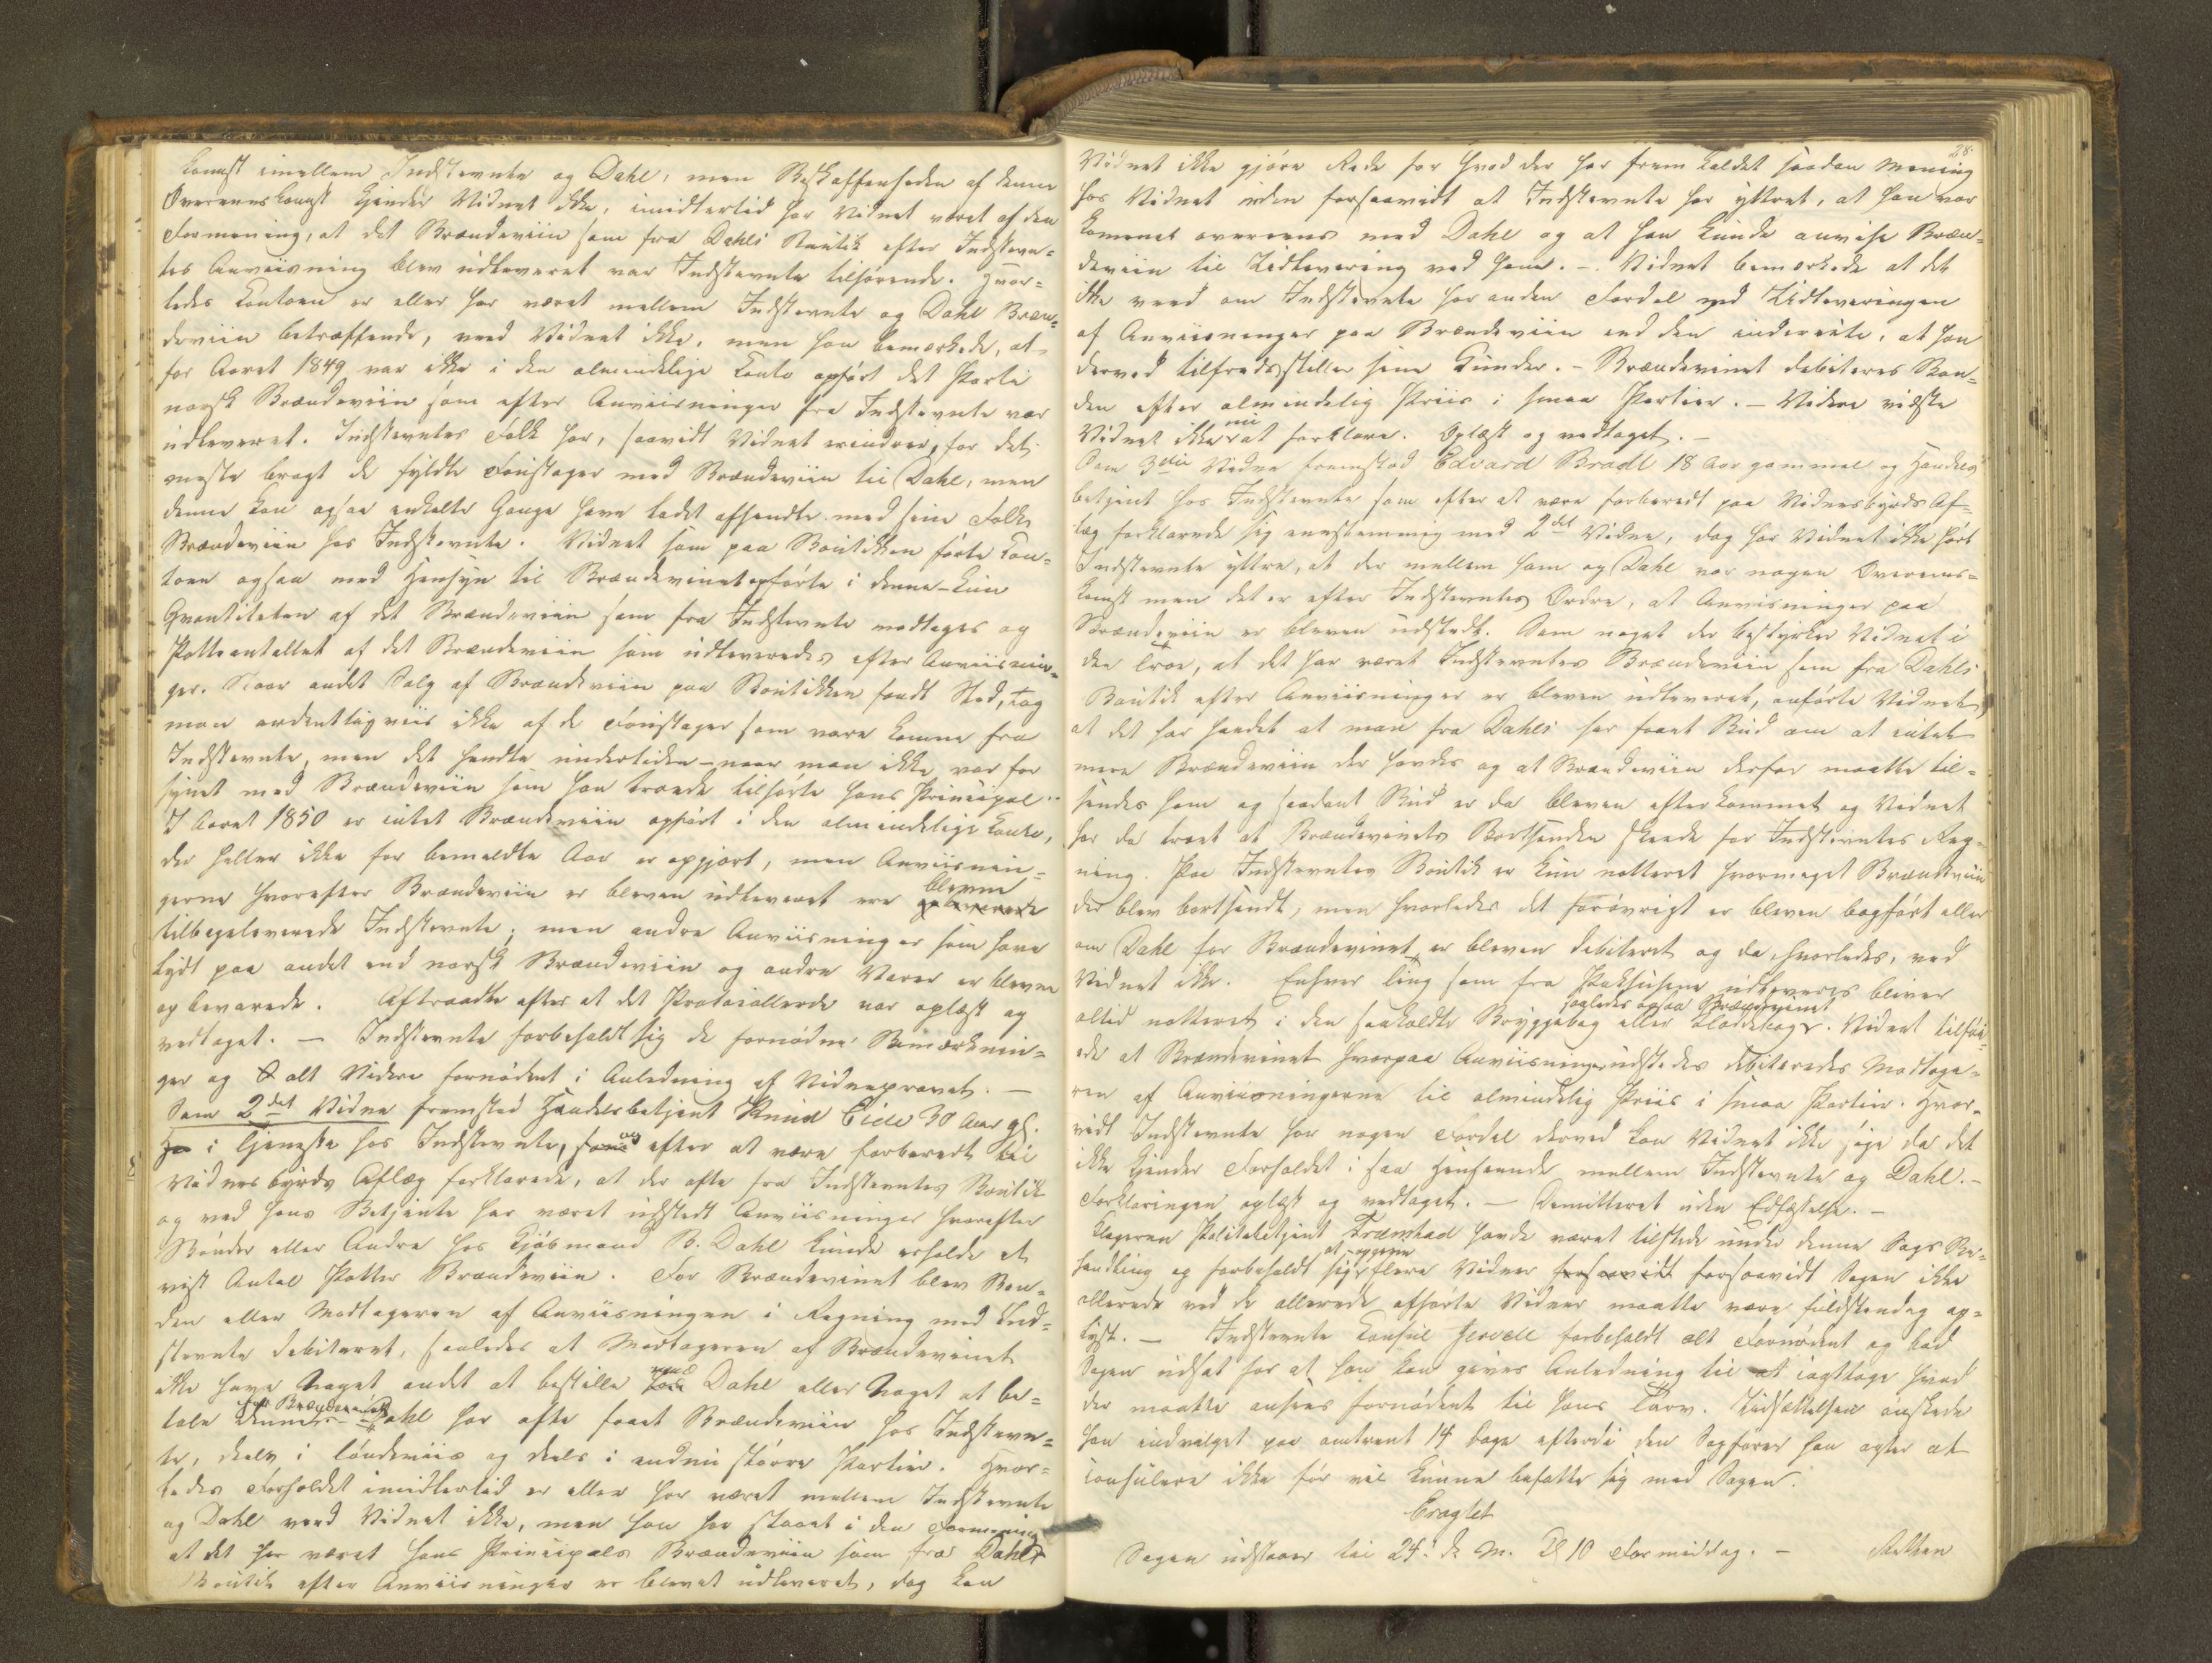 komst imellem Indstevnte og Dahl, men Beskaffenheden af denne
Overeenskomst kjender Vidnet ikke, imidlertid har Vidnet været af den
Formening, at det Brændeviin som fra Dahls Boutik efter Indstevn=
tes Anviisning blev udleveret var Indstevnte tilhørende. Hvor=
ledes Contoen er eller har været mellem Indstevnte og Dahl Bræn=
deviin betræffende, veed Vidnet ikke, men han bemærkede, at
for Aaret 1849 var ikke i den almindelige Conto opført det Parti
norsk Brændeviin som efter Anviisninger fra Indstevnte var
udleveret. Indstevntes Folk har, saavidt Vidnet erindrer, for det
meste bragt de fyldte Foustager med Brændeviin til Dahl, men
denne kan ogsaa enkelte Gange have ladet afhendte med sine Folk
Brændeviin hos Indstevnte. Vidnet som paa Boutikken førte Con=
toen ogsaa med Hensyn til Brændevinet opførte i denne kun
Qvantiteten af det Brændeviin som fra Indstevnte modtages og
Potteantallet af det Brændeviin som udleveredes efter Anviisnin=
ger. Naar andet Salg af Brændeviin paa Boutikken fandt Sted, tog
man ordentligviis ikke af de Foustager som vare komne fra
Indstevnte, men det hendte undertiden naar man ikke var for
synet med Brændeviin som han troede tilhørte hans Principal.
I Aaret 1850 er intet Brændeviin opført i den almindelige Conto,
der heller ikke for bemeldte Aar er opgjort, men Anviisnin=
gerne hvorefter Brændeviin er bleven udleveret ere bleven
tilbageleverede Indstevnte; men andre Anviisninger som have
lydt paa andet end norsk Brændeviin og andre Varer er blevne
opbevarede. Aftraadte efter at det Protocollerede var oplæst og
vedtaget. — Indstevnte forbeholdt sig de fornødne Bemærknin=
ger og alt Videre fornødent i Anledning af Vidneprovet. —
Som 2det Vidne fremstod Handelsbetjent Knud Eide 30 Aar gl.
i Tjeneste hos Indstevnte, og efter at være forberedt til
Vidnesbyrds Aflæg forklarede, at der ofte fra Indstevntes Boutik
og ved hans Betjente har været udstedt Anviisninger hvorefter
Bønder eller Andre hos Kjøbmand B. Dahl kunde erholde et
vist Antal Potter Brændeviin. For Brændevinet blev Bon=
den eller Modtageren af Anviisningen i Regning med Ind=
stevnte debiteret, saaledes at Modtageren af Brændevinet
ikke have Noget andet at bestille med Dahl eller Noget at be=
tale denne for Brændevinet. Dahl har ofte faaet Brændeviin hos Indstevn=
te, deels i tøndeviis og deels i endnu større Partier. Hvor=
ledes Forholdet imidlertid er eller har været mellem Indstevnte
og Dahl veed Vidnet ikke, men han har staaet i den Formening
at det har været hans Principals Brændeviin som fra Dahls
Boutik efter Anviisninger er blevet udleveret, dog kan
28
Vidnet ikke gjøre Rede for hvad der har fremkaldet saadan Mening
hos Vidnet uden forsaavidt at Indstevnte har yttret, at han var
kommet overeens med Dahl og at han kunde anvise Bræn=
deviin til Udlevering ved ham. — Vidnet bemærkede at det
ikke veed om Indstevnte har anden Fordel ved Udleveringen
af Anviisninger paa Brændeviin end den indirecte, at han
derved tilfredsstiller sine Kunder. — Brændevinet debiteres Bon=
den efter almindelig Priis i smaa Partier. — Videre vidste
Vidnet ikke nu at forklare. Oplæst og vedtaget. —
Som 3die Vidne fremstod Edvard Bradt 18 Aar gammel og Handels
betjent hos Indstevnte som efter at være forberedt paa Vidnesbyrds Af=
læg forklarede sig eenstemmig med 2det Vidne, dog har Vidnet ikke hørt
Indstevnte yttre, at der mellem ham og Dahl var nogen Overeens=
komst men det er efter Indstevntes Ordre, at Anvisninger paa
Brændeviin er bleven udstedt. Som noget der bestyrker Vidnet i
den Troe, at det har været Indstevntes Brændeviin som fra Dahls
Boutik efter Anviisninger er bleven udleveret, anførte Vidnet,
at det har hændet at man fra Dahls har faaet Bud om at intet
mere Brændeviin der havdes og at Brændeviin derfor maatte til=
sendes ham og saadant Bud er da bleven efterkommet og Vidnet
har da troet at Brændevinets Bortsenden skeede for Indstevntes Reg=
ning. Paa Indstevntes Boutik er kun notteret hvormeget Brændeviin
der blev bortsendt, men hvorledes det forøvrigt er bleven bogført eller
om Dahl for Brændevinet er bleven debiteret og da hvorledes, ved
Vidnet ikke. Enhver Ting som fra Pakhusene udleveres bliver
altid notteret i den saakaldte Bryggebog eller Kladdebog, saaledes ogsaa Brændevinet. Vidnet tilføi=
ede at Brændevinet hvorpaa Anviisninger udstedes debiteredes Modtage=
ren af Anviisningerne til almindelig Priis i smaa Partier. Hvor=
vidt Indstevnte har nogen Fordel derved kan Vidnet ikke sige da det
ikke kjender Forholdet i saa Henseende mellem Indstevnte og Dahl. —
Forklaringen oplæst og vedtaget. — Demitteret uden Edfæstelse. —
Klageren Politibetjent Fræmhad havde været tilstede under denne Sags Be=
handling og forbeholdt sig at opgive flere Vidner forsaavidt forsaavidt Sagen ikke
allerede ved de allerede afhørte Vidner maatte være fuldstændig op=
lyst. — Indstevnte Consul Jervell forbeholdt alt Fornødent og bad
Sagen udsat for at han kan gives Anledning til at iagttage hvad
der maatte ansees fornødent til hans Tarv. Udsættelsen ønskede
han indvilget paa omtrent 14 Dage efterdi den Sagfører han agter at
consulere ikke før vil kunne befatte sig med Sagen.
Eragtet
Sagen udstaaer til 24de d. M. Kl 10 Formiddag. — Retten